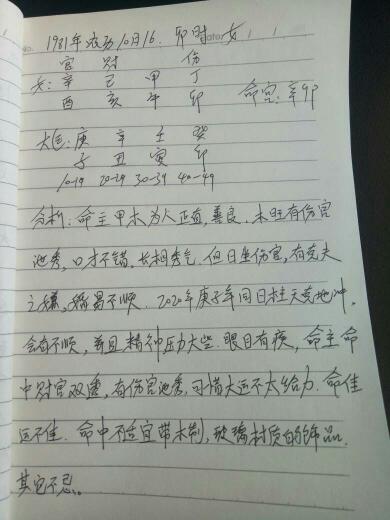 1981年农历10月16. 卯时 女
官 财 伤
女: 辛 己 甲 丁
酉 亥 午 卯 命宫: 辛卯
大运: 庚 辛 壬 癸
子 丑 寅 卯
10-19 20-29 30-39 40-49
分析: 命主甲木为人正直, 善良. 木旺有伤官
泄秀, 口才不错, 长相秀气. 但日坐伤官, 有克夫
之嫌, 婚易不顺. 2020年庚子年同日柱天克地冲,
会有不顺, 并且精神压力大些. 眼目有疾, 命主命
中财官双透, 有伤官泄秀, 可惜大运不太给力. 命佳
运不佳. 命中不适宜带木制, 玻璃材质的饰品.
其它不忌.